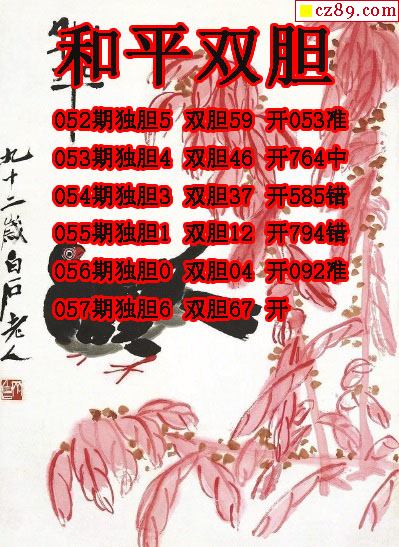 cz89.com
和平双胆
052期独胆5 双胆59 开053准
053期独胆4 双胆46 开764中
054期独胆3 双胆37 开585错
055期独胆1 双胆12 开794错
056期独胆0 双胆04 开092准
057期独胆6 双胆67 开
九十二岁白石老人